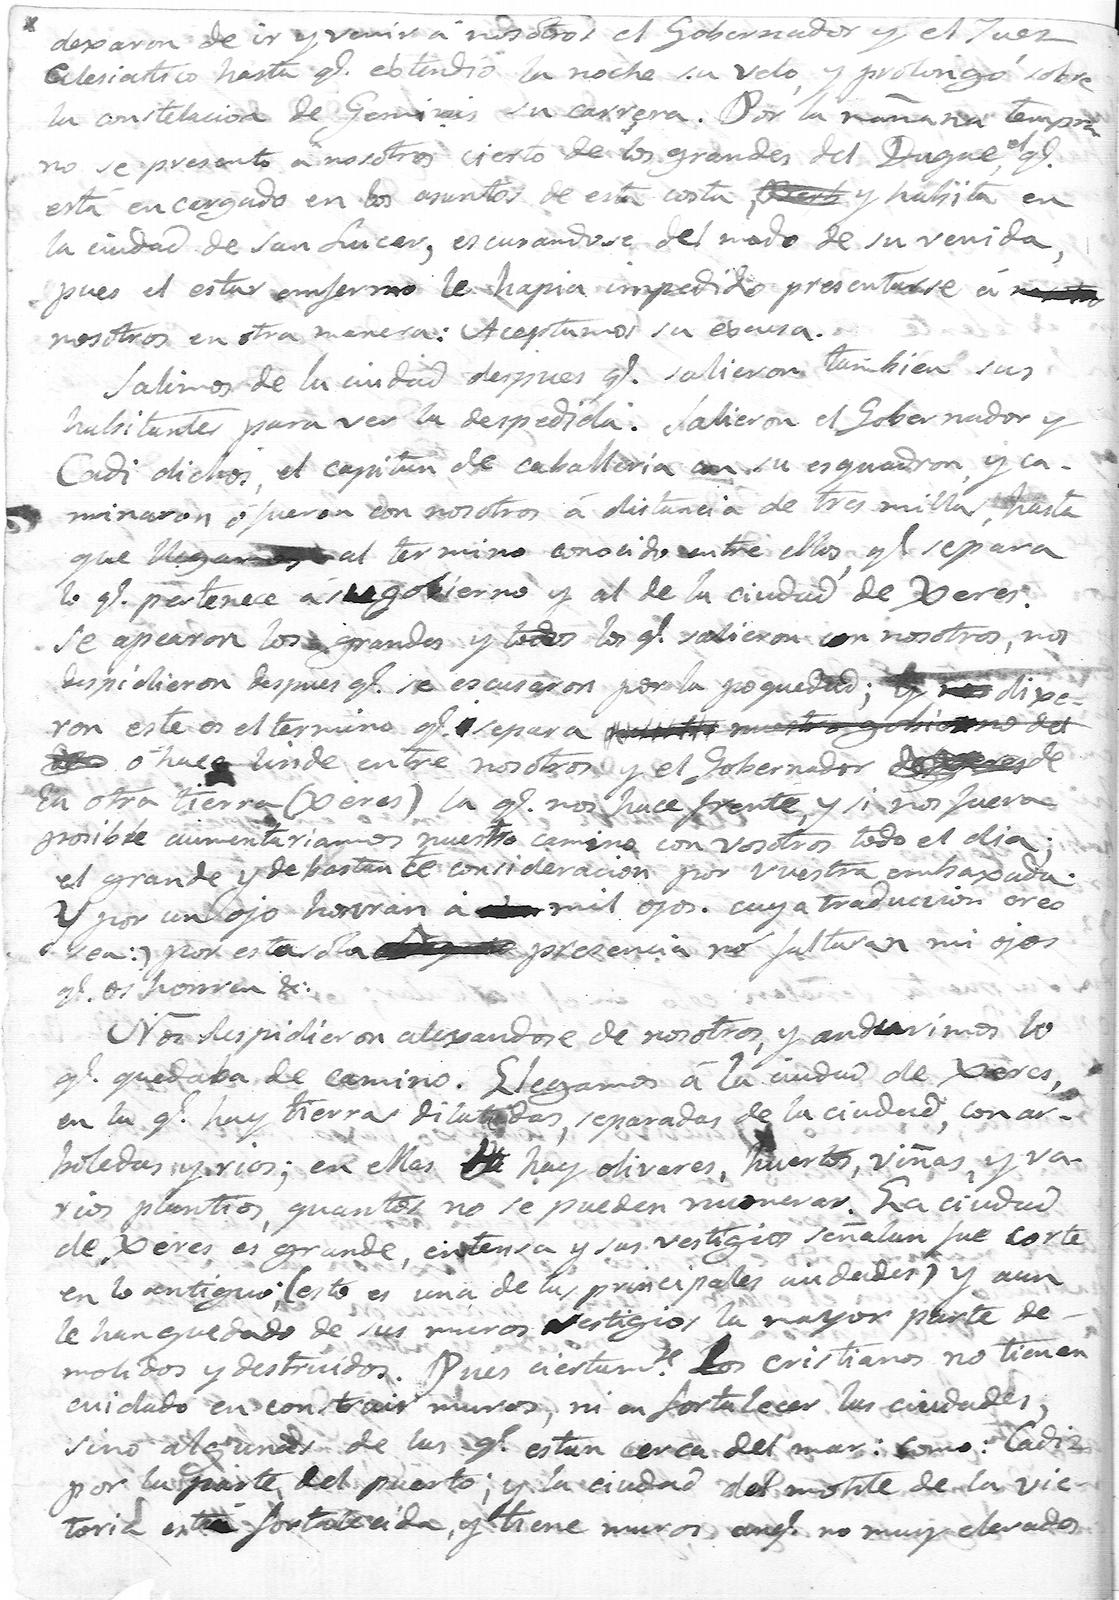 dexaron de ir y venir á nosotros el Gobernador y el Juez
eclesiastico hasta qe. estendio la noche su velo, y prolongó sobre
la constelacion de Geminis su carrera. Por la mañana tempra
no se presentó á nosotros cierto de los grandes del Duque, el qe.
está encargado en los asuntos de esta costa, y habita en
la ciudad de san Lucar, escusandose del modo de su venida,
pues el estar enfermo le hapia impedido presentarse á
nosotros en otra manera: Aceptamos su escusa.
Salimos de la ciudad despues qe. salieron tambien sus
habitantes para ver la despedida. Salieron el Gobernador y
Cadi dichos, el capitan de caballeria con su esquadron, y ca-
minaron ó fueron con nosotros á distancia de tres millas, hasta
que llegamos al termino conocido entre ellos, qe. separa
lo qe. pertenece á su gobierno y al de la ciudad de Xeres.
Se apearon los grandes y todos los qe. salieron con nosotros, nos
despidieron despues qe. se escusaron por la poquedad; y dixe-
ron este es el termino qe. separa nuestro gobierno del
ó hace linde entre nosotros y el Gobernador de
la otra tierra (Xeres) la qe. nos hace frente, y si nos fuera
posible aumentariamos nuestro camino con vosotros todo el dia;
el grande y de bastante consideracion por vuestra embaxada.
Y por un ojo honran á mil ojos. cuya traduccion creo
sea:) por esta sola presencia no faltaran mi ojos
qe. os honren &:
Nos despidieron alexandose de nosotros, y anduvimos lo
qe. quedaba de camino. Llegamos á la ciudad de Xeres,
en la qe. hay tierras dilatadas, separadas de la ciudad, con ar-
boledas y rios; en ellas hay olivares, huertos, viñas, y va-
rios plantios, quantos no se pueden numerar. La ciudad
de Xeres es grande, entensa y sus vestigios señalan fue corte
en lo antiguo; (esto es una de las principales ciudades) y aun
le han quedado de sus muros vestigios la mayor parte de-
molidos y destruidos. Pues ciertamte. Los cristianos no tienen
cuidado en construir muros, ni en fortalecer las ciudades,
sino algunas de las qe. estan cerca del mar: como: Cadiz
por la parte del puerto; y la ciudad del monte de la vic-
toria está fortalecida, y tiene muros, anqe. no muy elevados